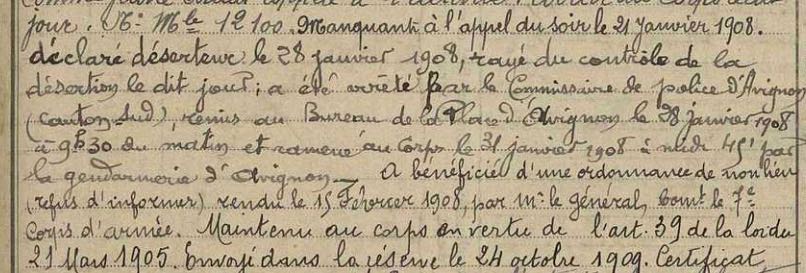 jour. N° Mle 12100. Manquant à l'appel du soir le 21 Janvier 1908.
déclaré déserteur le 28 janvier 1908, rayé du contrôle de la
désertion le dit jour ; a été arrêté par le Commissaire de police d'Avignon
(canton Sud), remis au Bureau de la Place d'Avignon le 28 janvier 1908
à 9h30 du matin et ramené au Corps le 31 janvier 1908 à midi 45' par
la gendarmerie d'Avignon_ A bénéficié d'une ordonnance de non lieu
(refus d'informer) rendu le 15 Février 1908, par Mr le général, Comt le 7e
Corps d'armée. Maintenu au corps en vertu de l'art. 39 de la loi du
21 Mars 1905. Envoyé dans la réserve le 24 octobre 1909. Certificat